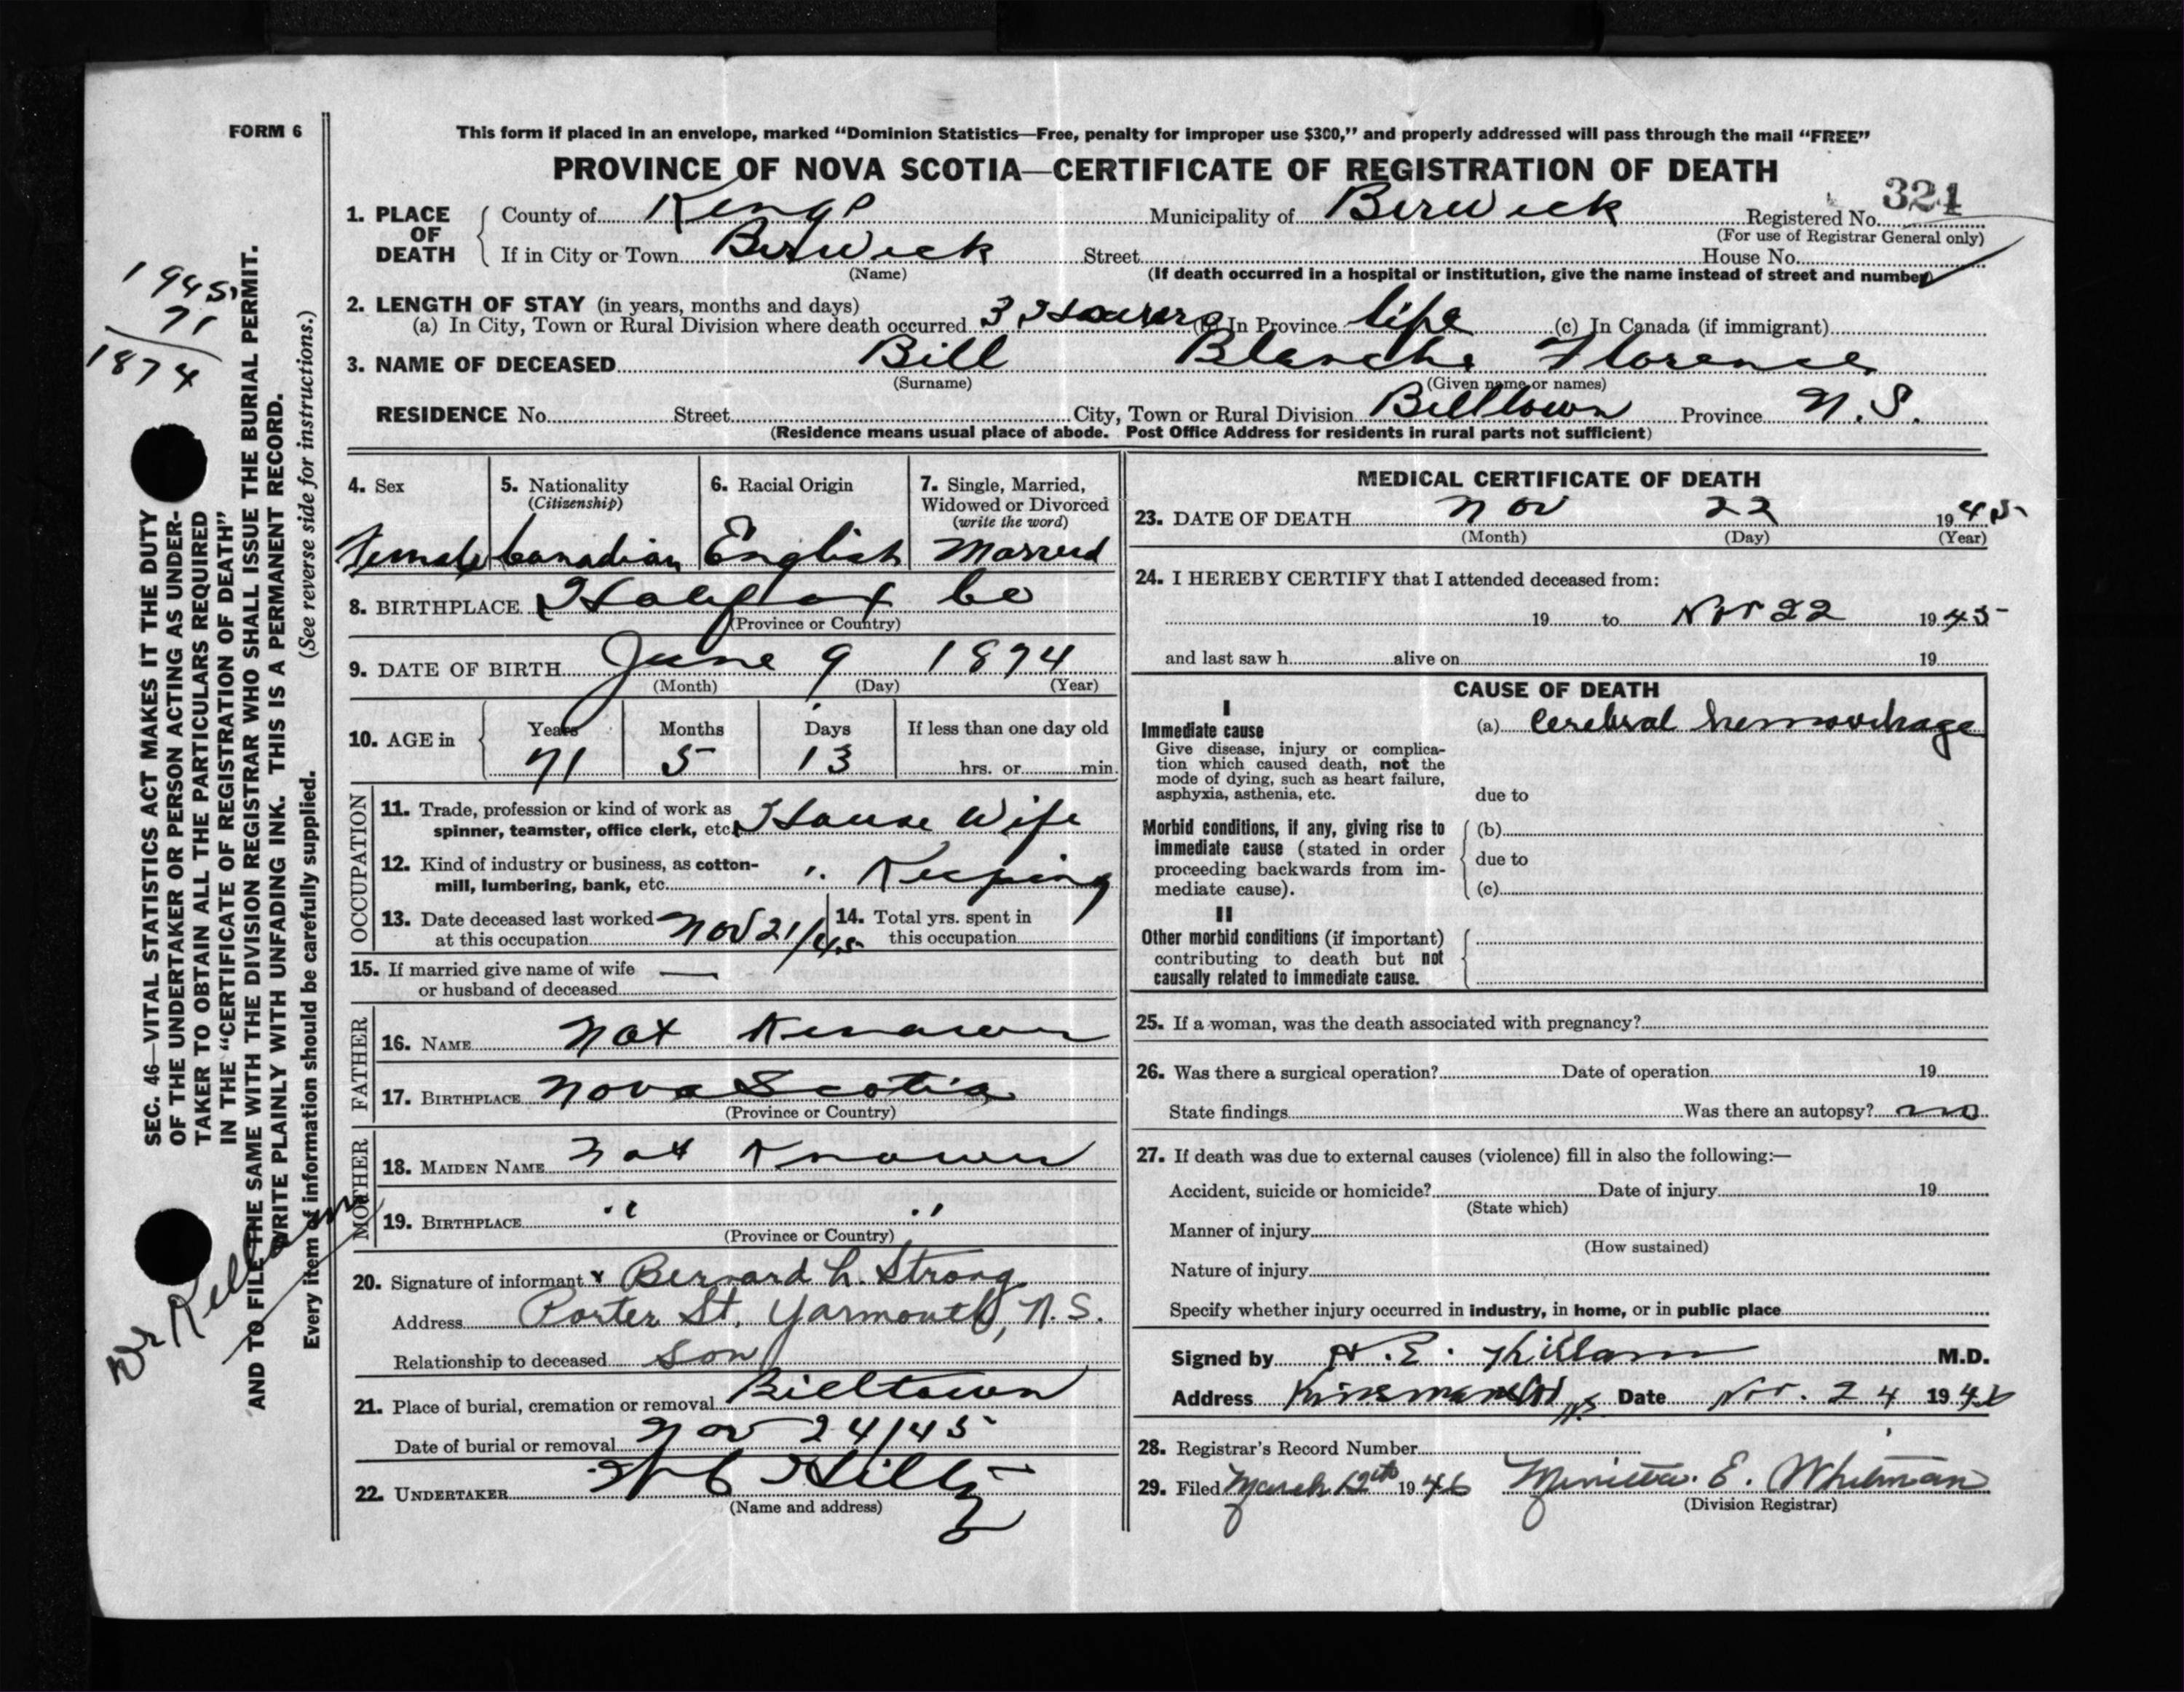 FORM 6
This form if placed in an envelope, marked "Dominion Statistics—Free, penalty for improper use $300," and properly addressed will pass through the mail "FREE"
PROVINCE OF NOVA SCOTIA—CERTIFICATE OF REGISTRATION OF DEATH
1. PLACE OF DEATH County of Kings Municipality of Berwick Registered No. 321
(For use of Registrar General only)
If in City or Town Berwick Street House No.
(Name) (If death occurred in a hospital or institution, give the name instead of street and number)
2. LENGTH OF STAY (in years, months and days)
(a) In City, Town or Rural Division where death occurred 3 Hours (b) In Province life (c) In Canada (if immigrant)
3. NAME OF DECEASED Bill Blanche Florence
(Surname) (Given name or names)
RESIDENCE No. Street City, Town or Rural Division Billtown Province N.S.
(Residence means usual place of abode. Post Office Address for residents in rural parts not sufficient)
4. Sex 5. Nationality (Citizenship) 6. Racial Origin 7. Single, Married, Widowed or Divorced (write the word)
Female Canadian English Married
8. BIRTHPLACE Halifax Co
(Province or Country)
9. DATE OF BIRTH June 9 1874
(Month) (Day) (Year)
10. AGE in Years Months Days If less than one day old
71 5 13 hrs. or min.
OCCUPATION
11. Trade, profession or kind of work as spinner, teamster, office clerk, etc. House Wife
12. Kind of industry or business, as cotton-mill, lumbering, bank, etc. " Keeping
13. Date deceased last worked at this occupation Nov 21/45 14. Total yrs. spent in this occupation
15. If married give name of wife or husband of deceased —
FATHER
16. NAME Not Known
17. BIRTHPLACE Nova Scotia
(Province or Country)
MOTHER
18. MAIDEN NAME Not Known
19. BIRTHPLACE " "
(Province or Country)
20. Signature of informant x Bernard L. Strong
Address Porter St. Yarmouth, N.S.
Relationship to deceased Son
21. Place of burial, cremation or removal Billtown
Date of burial or removal Nov 24/45
22. UNDERTAKER
(Name and address)
MEDICAL CERTIFICATE OF DEATH
23. DATE OF DEATH Nov 22 1945
(Month) (Day) (Year)
24. I HEREBY CERTIFY that I attended deceased from:
19 to Nov 22 1945
and last saw h alive on 19
CAUSE OF DEATH
I
Immediate cause (a) Cerebral hemorrhage
Give disease, injury or complication which caused death, not the mode of dying, such as heart failure, asphyxia, asthenia, etc.
due to
Morbid conditions, if any, giving rise to immediate cause (stated in order proceeding backwards from immediate cause).
(b)
due to
(c)
II
Other morbid conditions (if important) contributing to death but not causally related to immediate cause.
25. If a woman, was the death associated with pregnancy?
26. Was there a surgical operation? Date of operation 19
State findings Was there an autopsy? no
27. If death was due to external causes (violence) fill in also the following:—
Accident, suicide or homicide? Date of injury 19
(State which)
Manner of injury
(How sustained)
Nature of injury
Specify whether injury occurred in industry, in home, or in public place
Signed by H. E. Killam M.D.
Address NS Date Nov. 24 19
28. Registrar's Record Number
29. Filed March 12th 1946 E. Whitman
(Division Registrar)
SEC. 46—VITAL STATISTICS ACT MAKES IT THE DUTY
OF THE UNDERTAKER OR PERSON ACTING AS UNDER-
TAKER TO OBTAIN ALL THE PARTICULARS REQUIRED
IN THE "CERTIFICATE OF REGISTRATION OF DEATH"
AND TO FILE THE SAME WITH THE DIVISION REGISTRAR WHO SHALL ISSUE THE BURIAL PERMIT.
WRITE PLAINLY WITH UNFADING INK. THIS IS A PERMANENT RECORD.
Every item of information should be carefully supplied. (See reverse side for instructions.)
1945
71
1874
Dr Killam